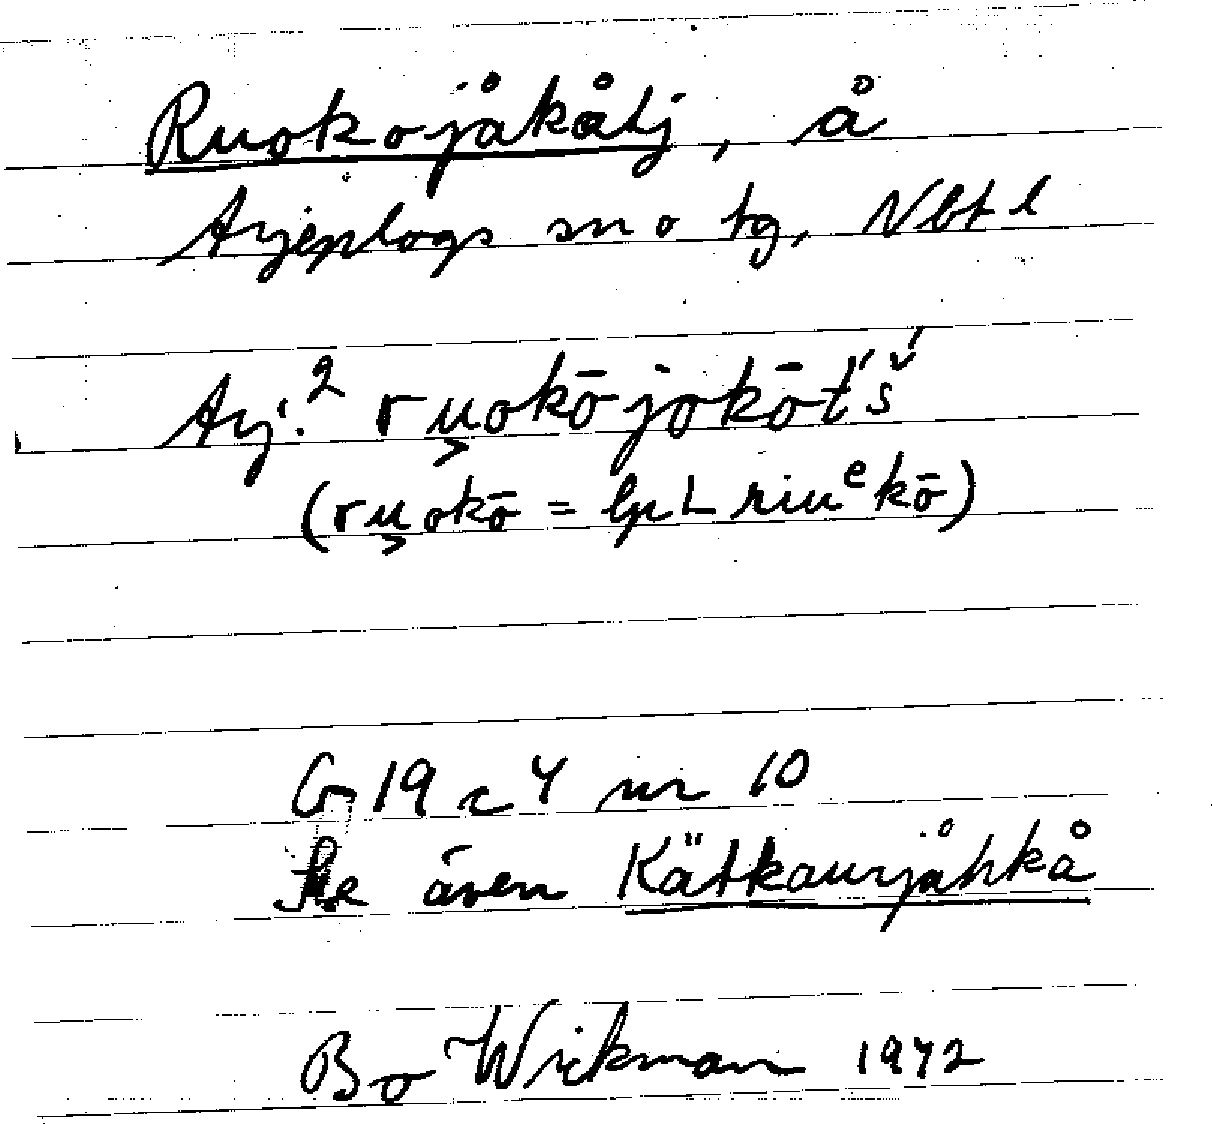 Ruokojåkåtj, å
Arjeplogs sn o tg, Nbt l
Arj.² ru̬okōjokōt́š́
(ru̬okō = lpL riuᵉkō)
G 19 c 4 nr 10
Se även Kätkaurjåhkå
Bo Wickman 1972